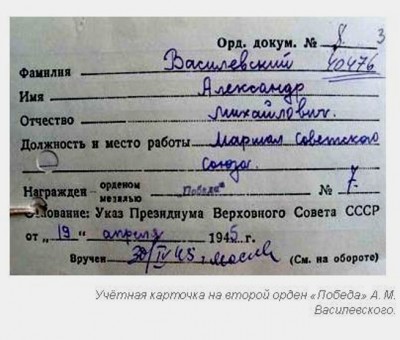 Орд. докум. № 8 3
Фамилия Василевский 40476
Имя Александр
Отчество Михайлович.
Должность и место работы Маршал Советского
Союза.
Награжден орденом медалью "Победа" № 7.
Основание: Указ Президиума Верховного Совета СССР
от „19" апреля 1945 г.
Вручен 30/IV 45. (См. на обороте)
Учётная карточка на второй орден «Победа» А. М.
Василевского.